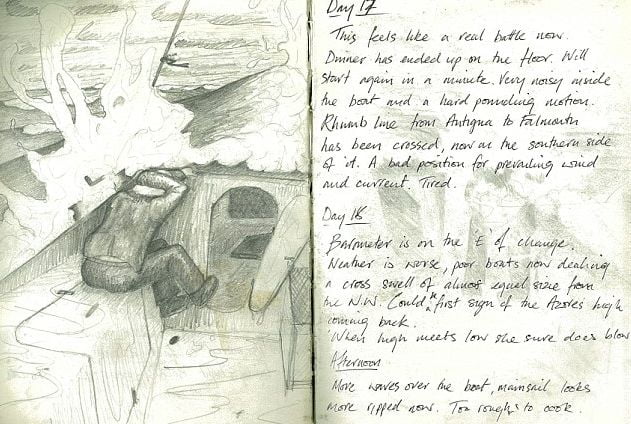 Day 17
This feels like a real battle now.
Dinner has ended up on the floor. Will
start again in a minute. Very noisy inside
the boat and a hard pounding motion.
Rhumb line from Antigua to Falmouth
has been crossed, now on the southern side
of it. A bad position for prevailing wind
and current. Tired.
Day 18
Barometer is on the 'E' of change.
Weather is worse, poor boats now dealing
a cross swell of almost equal size from
the N.W. Could be first sign of the Azores high
coming back.
'When high meets low she sure does blow
Afternoon
More waves over the boat, mainsail looks
more ripped now. Too rough to cook.